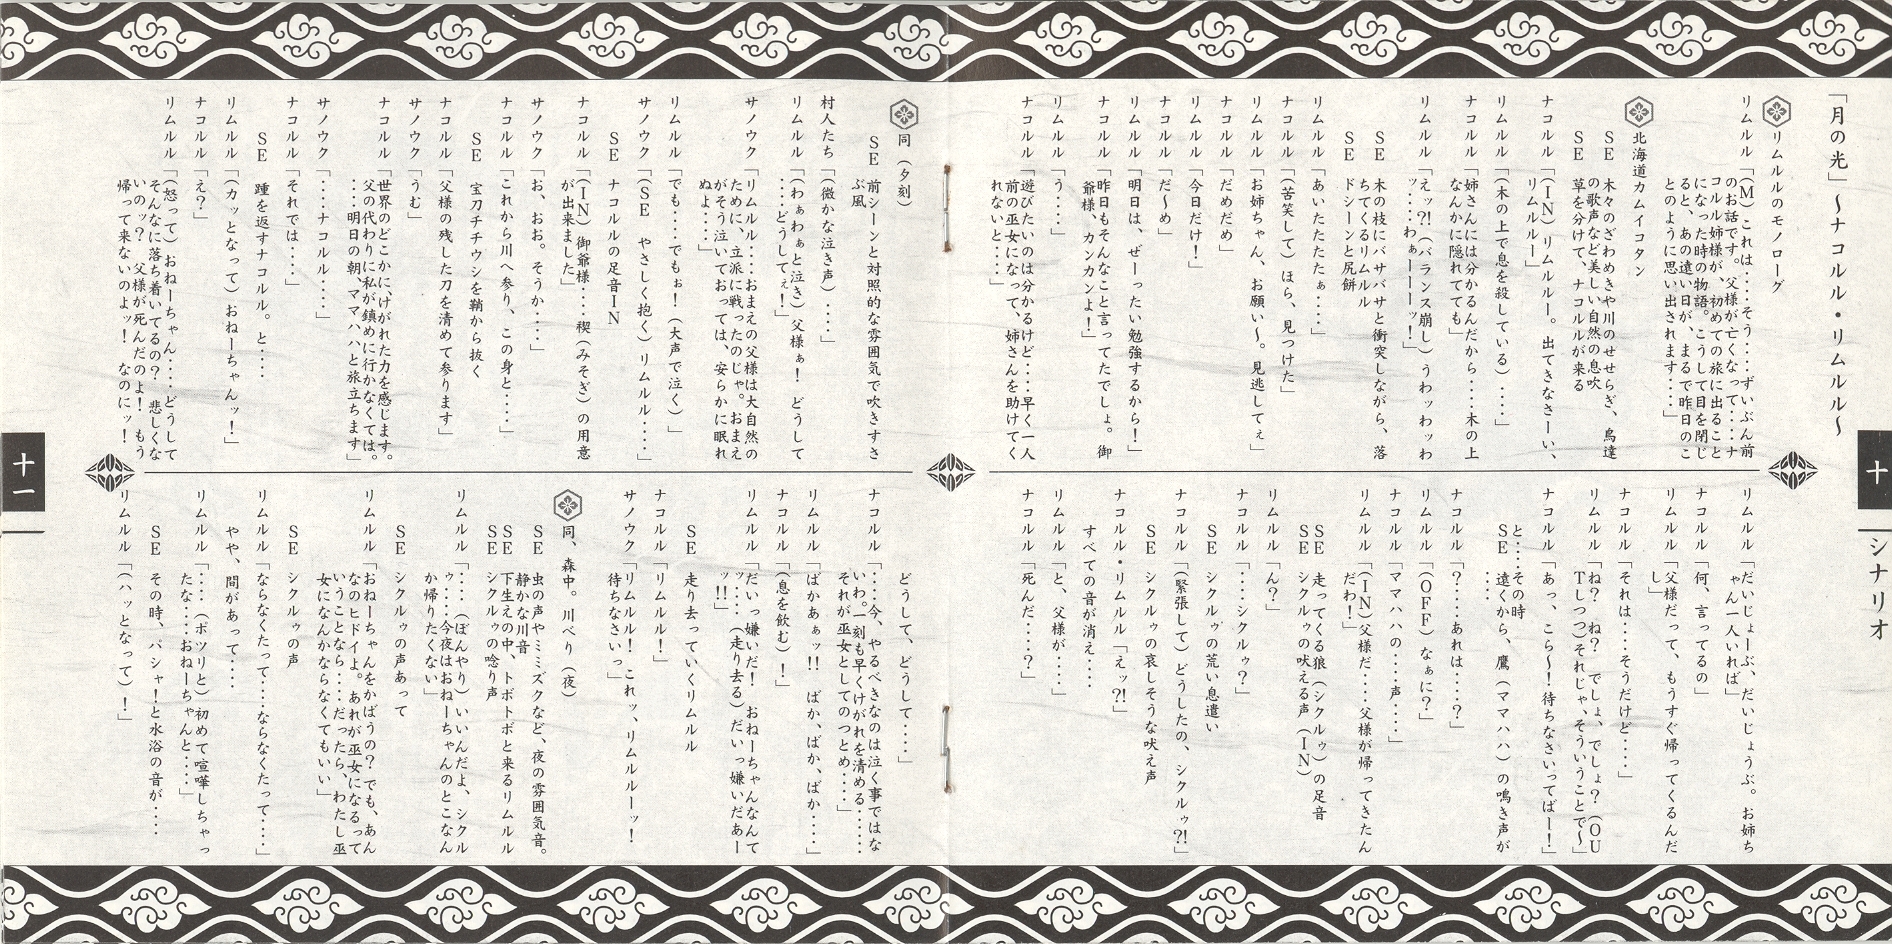 十
シナリオ
「月の光」〜ナコルル・リムルル〜
リムルルのモノローグ
リムルル「(M)これは‥‥そう‥‥ずいぶん前
のお話です。父様が亡くなって‥‥ナ
コルル姉様が、初めての旅に出ること
になった時の物語。こうして目を閉じ
ると、あの遠い日が、まるで昨日のこ
とのように思い出されます‥‥」
北海道カムイコタン
SE 木々のざわめきや川のせせらぎ、鳥達
の歌声など美しい自然の息吹
SE 草を分けて、ナコルルが来る
ナコルル「(IN)リムルルー。出てきなさーい、
リムルルー」
リムルル「(木の上で息を殺している)‥‥」
ナコルル「姉さんには分かるんだから‥‥木の上
なんかに隠れてても」
リムルル「えッ?!(バランス崩し)うわッわッわ
ッ‥‥わぁーーーッ!」
SE 木の枝にバサバサと衝突しながら、落
ちてくるリムルル
SE ドシーンと尻餅
リムルル「あいたたたたぁ‥‥」
ナコルル「(苦笑して)ほら、見つけた」
リムルル「お姉ちゃん、お願い〜。見逃してぇ」
ナコルル「だめだめ」
リムルル「今日だけ!」
ナコルル「だ〜め」
リムルル「明日は、ぜーったい勉強するから!」
ナコルル「昨日もそんなこと言ってたでしょ。御
爺様、カンカンよ!」
リムルル「う‥‥」
ナコルル「遊びたいのは分かるけど‥‥早く一人
前の巫女になって、姉さんを助けてく
れないと‥‥」
リムルル「だいじょーぶ、だいじょうぶ。お姉ち
ゃん一人いれば」
ナコルル「何、言ってるの」
リムルル「父様だって、もうすぐ帰ってくるんだ
し」
ナコルル「それは‥‥そうだけど‥‥」
リムルル「ね?ね?でしょ、でしょ?(OU
Tしつつ)それじゃ、そういうことで〜」
ナコルル「あっ、こら〜!待ちなさいってばー!」
と‥‥その時
SE 遠くから、鷹(ママハハ)の鳴き声が
‥‥
ナコルル「?‥‥あれは‥‥?」
リムルル「(OFF)なぁに?」
ナコルル「ママハハの‥‥声‥‥」
リムルル「(IN)父様だ‥‥父様が帰ってきたん
だわ!」
SE 走ってくる狼(シクルゥ)の足音
SE シクルゥの吠える声(IN)
リムルル「ん?」
ナコルル「‥‥シクルゥ?」
SE シクルゥの荒い息遣い
ナコルル「(緊張して)どうしたの、シクルゥ?!」
SE シクルゥの哀しそうな吠え声
ナコルル・リムルル「えッ?!」
すべての音が消え‥‥
リムルル「と、父様が‥‥」
ナコルル「死んだ‥‥?」
同(夕刻)
SE 前シーンと対照的な雰囲気で吹きすさ
ぶ風
村人たち「(微かな泣き声)‥‥」
リムルル「(わぁわぁと泣き)父様ぁ!どうして
‥‥どうしてぇ!」
サノウク「リムルル‥‥おまえの父様は大自然の
ために、立派に戦ったのじゃ。おまえ
がそう泣いておっては、安らかに眠れ
ぬよ‥‥」
リムルル「でも‥‥でもぉ!(大声で泣く)」
サノウク「(SE やさしく抱く)リムルル‥‥」
SE ナコルルの足音IN
ナコルル「(IN)御爺様‥‥禊(みそぎ)の用意
が出来ました」
サノウク「お、おお。そうか‥‥」
ナコルル「これから川へ参り、この身と‥‥」
SE 宝刀チチウシを鞘から抜く
ナコルル「父様の残した刀を清めて参ります」
サノウク「うむ」
ナコルル「世界のどこかに、けがれた力を感じます。
父の代わりに私が鎮めに行かなくては。
‥‥明日の朝、ママハハと旅立ちます」
サノウク「‥‥ナコルル‥‥」
ナコルル「それでは‥‥」
SE 踵を返すナコルル。と‥‥
リムルル「(カッとなって)おねーちゃんッ!」
ナコルル「え?」
リムルル「(怒って)おねーちゃん‥‥どうして
そんなに落ち着いてるの?悲しくな
いのッ?父様が死んだのよ!もう
帰って来ないのよッ!なのにッ!
どうして、どうして‥‥」
ナコルル「‥‥今、やるべきなのは泣く事ではな
いわ。一刻も早くけがれを清める‥‥
それが巫女としてのつとめ‥‥」
リムルル「ばかあぁッ!!ばか、ばか、ばか‥‥」
ナコルル「(息を飲む)!」
リムルル「だいっ嫌いだ!おねーちゃんなんて
ッ‥‥(走り去る)だいっ嫌いだあー
ッ!!」
SE 走り去っていくリムルル
ナコルル「リムルル!」
サノウク「リムルル!これッ、リムルルーッ!
待ちなさいっ」
同、森中。川べり(夜)
SE 虫の声やミミズクなど、夜の雰囲気音。
静かな川音
SE 下生えの中、トボトボと来るリムルル
SE シクルゥの唸り声
リムルル「‥‥(ぼんやり)いいんだよ、シクル
ゥ‥‥今夜はおねーちゃんのとこなん
か帰りたくない」
SE シクルゥの声あって
リムルル「おねーちゃんをかばうの?でも、あん
なのヒドイよ。あれが巫女になるって
いうことなら‥‥だったら、わたし巫
女になんかならなくてもいい」
SE シクルゥの声
リムルル「ならなくたって‥‥ならなくたって‥‥」
やや、間があって‥‥
リムルル「‥‥(ポツリと)初めて喧嘩しちゃっ
たな‥‥おねーちゃんと‥‥」
SE その時、パシャ!と水浴の音が‥‥
リムルル「(ハッとなって)!」
十一